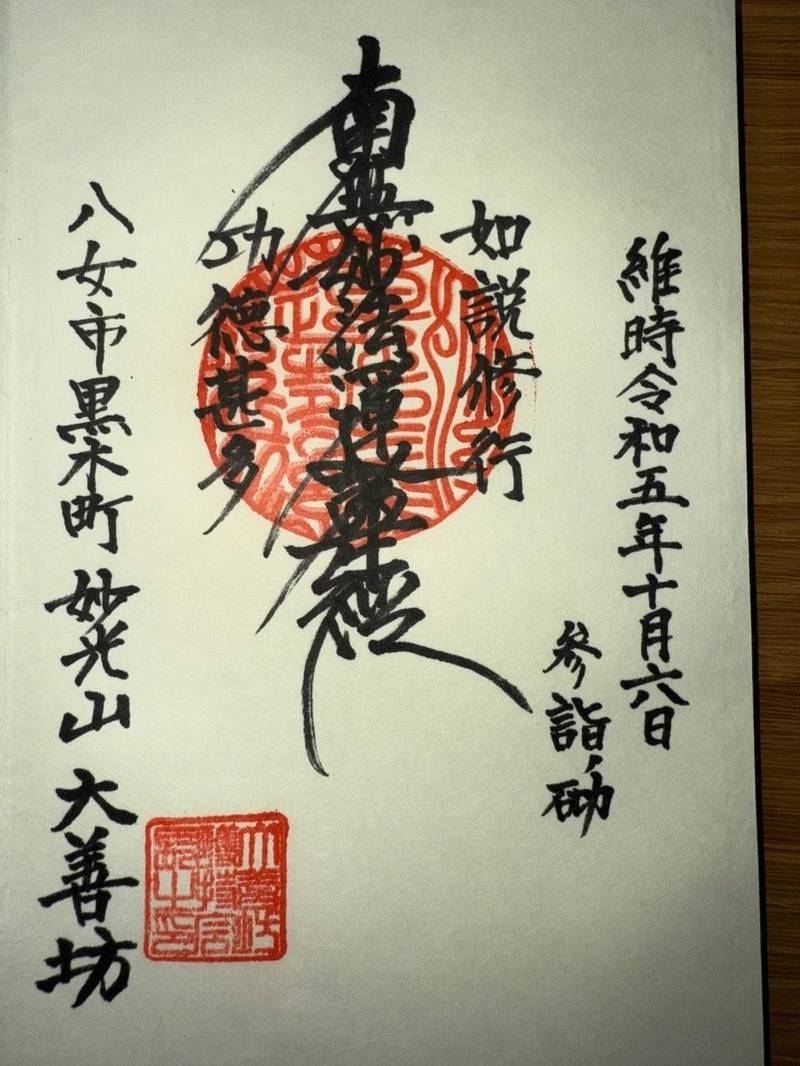 維時令和五年十月六日
参詣ノ砌
如説修行
南無妙法蓮華経
功徳甚多
八女市黒木町 妙光山 大善坊